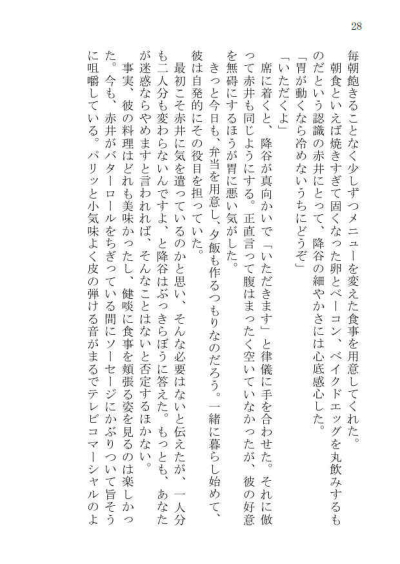 28
毎朝飽きることなく少しずつメニューを変えた食事を用意してくれた。
朝食といえば焼きすぎて固くなった卵とベーコン、ベイクドエッグを丸飲みするも
のだという認識の赤井にとって、降谷の細やかさには心底感心した。
「胃が動くなら冷めないうちにどうぞ」
「いただくよ」
席に着くと、降谷が真向かいで「いただきます」と律儀に手を合わせた。それに倣
って赤井も同じようにする。正直言って腹はまったく空いていなかったが、彼の好意
を無碍にするほうが胃に悪い気がした。
きっと今日も、弁当を用意し、夕飯も作るつもりなのだろう。一緒に暮らし始めて、
彼は自発的にその役目を担っていた。
最初こそ赤井に気を遣っているのかと思い、そんな必要はないと伝えたが、一人分
も二人分も変わらないんですよ、と降谷はぶっきらぼうに答えた。もっとも、あなた
が迷惑ならやめますと言われれば、そんなことはないと否定するほかない。
事実、彼の料理はどれも美味かったし、健啖に食事を頬張る姿を見るのは楽しかっ
た。今も、赤井がバターロールをちぎっている間にソーセージにかぶりついて旨そう
に咀嚼している。パリッと小気味よく皮の弾ける音がまるでテレビコマーシャルのよ